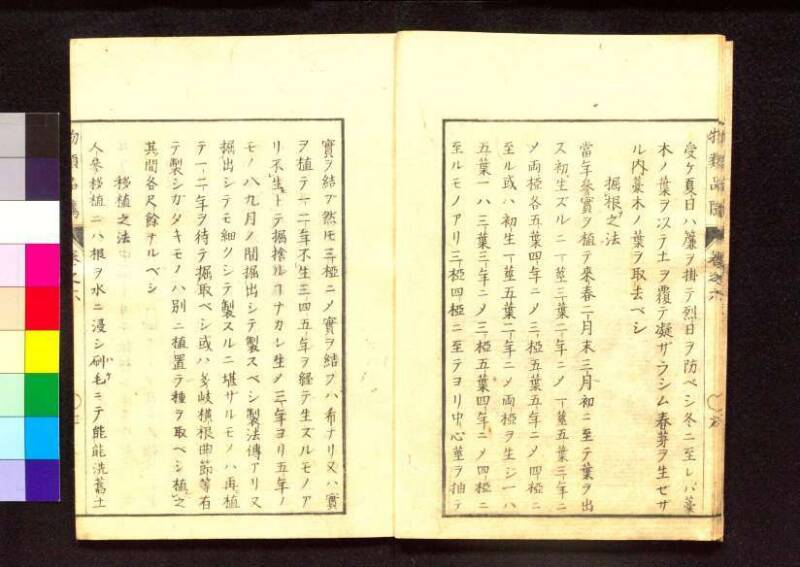 受ケ夏日ハ簾ヲ掛テ烈日ヲ防ベシ冬ニ至レバ藁
木ノ葉ヲ以テ土ヲ覆テ凝ザラシム春芽ヲ生ゼザ
ル内藁木ノ葉ヲ取去ベシ
掘根之法
當年參實ヲ植テ來春二月末三月初ニ至テ葉ヲ出
ス初生ズルニ一莖三葉二年ニメ一莖五葉三年ニ
メ両椏各五葉四年ニメ三椏五葉五年ニメ四椏ニ
至ル或ハ初生一莖五葉二年ニメ両椏ヲ生シ一ハ
五葉一ハ三葉三年ニメ三椏五葉四年ニメ四椏ニ
至ルモノアリ三椏四椏ニ至テヨリ中心莖ヲ抽テ
物類品隲 巻之六
實ヲ結ブ然モ三椏ニメ實ヲ結フハ希ナリ又ハ實
ヲ植テ一二年不生三四五年ヲ経テ生ズルモノア
リ不生トテ掘捨ルコナカレ生メ三年ヨリ五年ノ
モノ八九月ノ間掘出シテ製スベシ製法傳アリ又
掘出シテモ細クシテ製スルニ堪ザルモノハ再植
テ一二年ヲ待テ掘取ベシ或ハ多岐横根曲節等有
テ製シガタキモノハ別ニ植置テ種ヲ取ベシ植之
其間各尺餘ナルベシ
移植之法
人參移植ニハ根ヲ水ニ浸シ刷毛ニテ能能洗舊土
巻之六